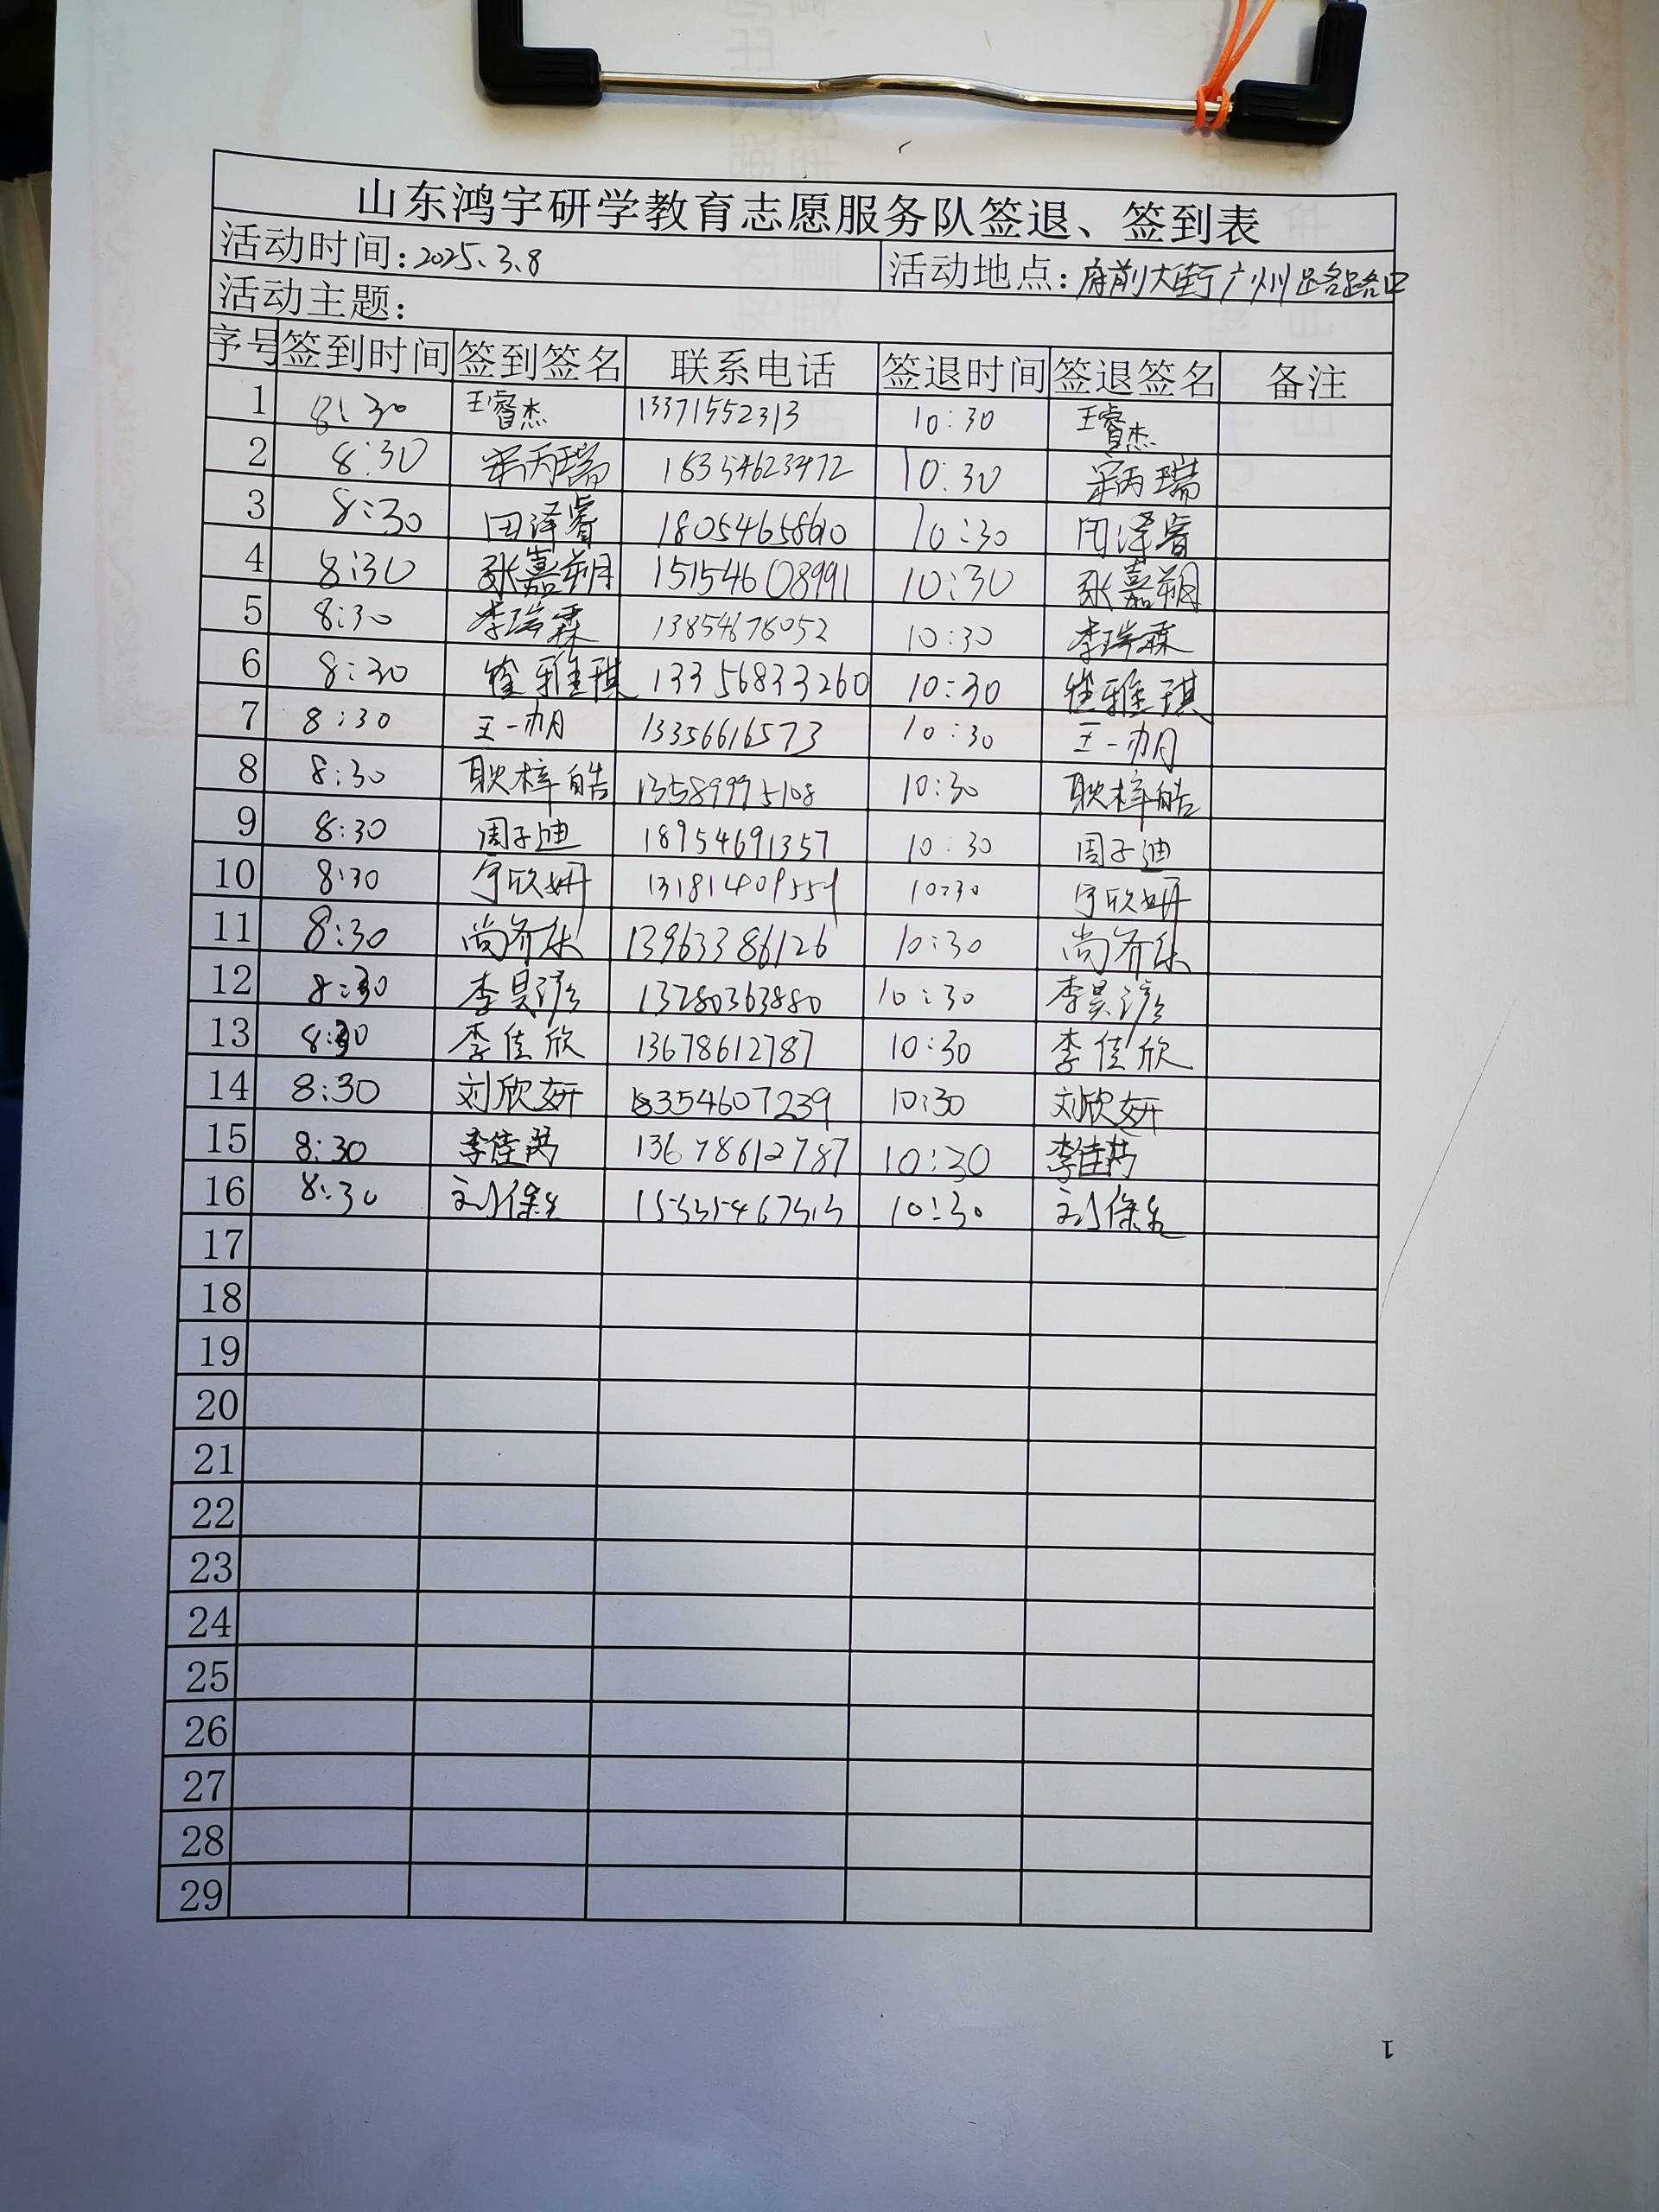 山东鸿宇研学教育志愿服务队签退、签到表
活动时间：2025.3.8 活动地点：府前大街广州路路口
活动主题：
序号 签到时间 签到签名 联系电话 签退时间 签退签名 备注
1 8:30 王睿杰 13371552313 10:30 王睿杰
2 8:30 宋丙瑞 18354623472 10:30 宋丙瑞
3 8:30 田泽睿 18054658610 10:30 田泽睿
4 8:30 张嘉朔 15154608991 10:30 张嘉朔
5 8:30 李瑞霖 13854676052 10:30 李瑞霖
6 8:30 雅琪 13356833260 10:30 雅琪
7 8:30 王一 13356616573 10:30 王一
8 8:30 耿梓皓 13589995108 10:30 耿梓皓
9 8:30 周子迪 18954691357 10:30 周子迪
10 8:30 欣妍 13181409559 10:30 欣妍
11 8:30 尚乔乐 13963386126 10:30 尚乔乐
12 8:30 李昊 13280363880 10:30 李昊
13 8:30 李佳欣 13678612787 10:30 李佳欣
14 8:30 刘欣妍 18354607239 10:30 刘欣妍
15 8:30 李佳芮 13678612787 10:30 李佳芮
16 8:30 刘保 10:30 刘保
17
18
19
20
21
22
23
24
25
26
27
28
29
1